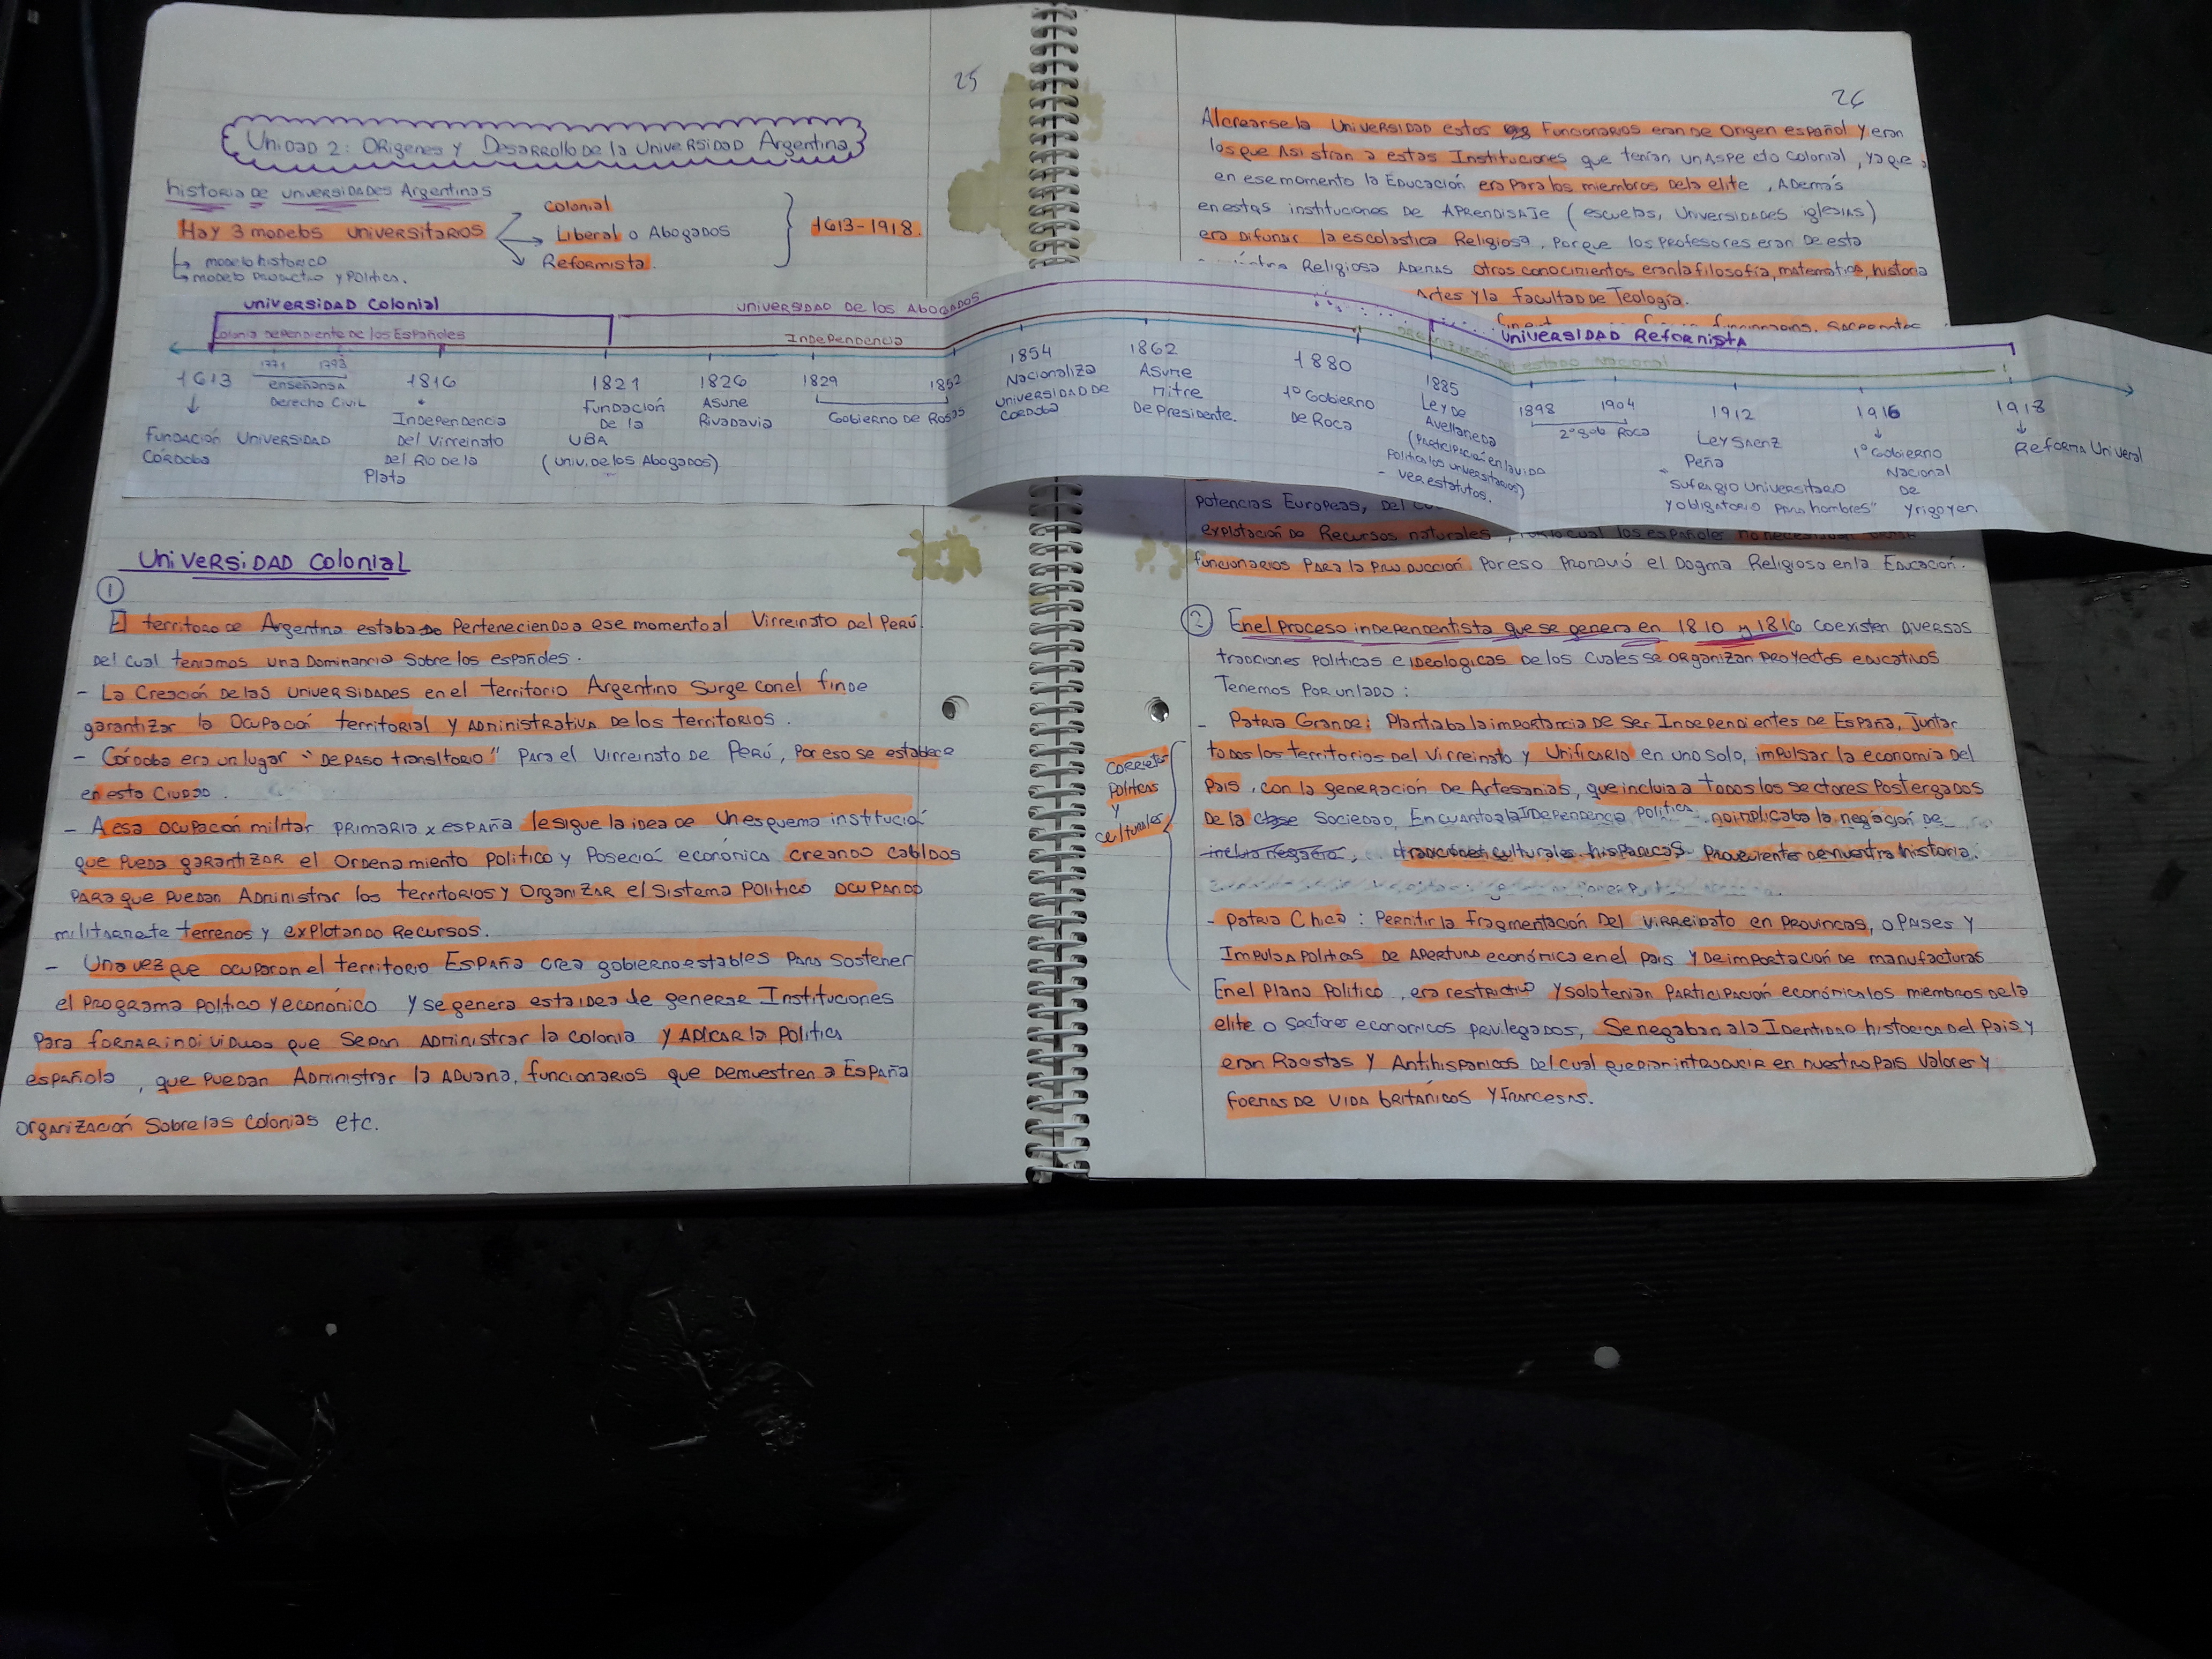 25
Unidad 2: Origenes y Desarrollo de la Universidad Argentina
historia de universidades Argentinas
Hay 3 modelos universitarios
Colonial
Liberal o Abogados
Reformista.
1613-1918.
modelo historico
modelo productivo y Politico.
universidad Colonial
universidad De los Abogados
Universidad Reformista
Colonia dependiente de los Españoles
Independencia
1613
Fundación Universidad
Córdoba
1771 1793
enseñansa
Derecho Civil
1816
Independencia
Del Virreinato
Del Rio de la
Plata
1821
Fundación
De la
UBA
(univ. de los Abogados)
1826
Asume
Rivadavia
1829 1852
Gobierno De Rosas
1854
Nacionaliza
universidad De
Cordoba
1862
Asume
Mitre
De Presidente.
1880
1º Gobierno
De Roca
1885
Ley De
Avellaneda
(Participación en la vida
Politica los universitarios)
- ver estatutos.
1898 1904
2º gob Roca
1912
Ley Saenz
Peña
Sufragio Universitario
y obligatorio para hombres"
1916
1º Gobierno
Nacional
De
Yrigoyen
1918
Reforma Univeral
Universidad Colonial
1
El territoro de Argentina estaba Perteneciendo a ese momento al Virreinato Del Perú.
Del cual teniamos una Dominancia Sobre los españoles.
- La Creación De las universidades en el territorio Argentino Surge con el fin de
garantizar la Ocupació territorial y Administrativa De los territorios.
- Córdoba era un lugar "De Paso transitorio" Para el Virreinato De Perú, Por eso se establece
en esta Ciudad.
- A esa ocupación militar primaria x España le sigue la idea de un esquema institució
que pueda garantizar el Ordenamiento Politico y Posesió económica creando cabildos
para que puedan Administrar los territorios y Organizar el Sistema Politico ocupando
militarmete terrenos y explotando Recursos.
- Una vez que ocuparon el territorio España crea gobierno estables para sostener
el Programa Politico y económico y se genera esta idea de generar Instituciones
Para formar individuos que Sepan Administrar la colonia y aplicar la Politica
española, que Puedan Administrar la Aduana, funcionarios que Demuestren a España
Organización Sobre las Colonias etc.
26
Al crearse la Universidad estos Funcionarios eran de Origen español y eran
los que Asistian a estas Instituciones que tenian un Aspecto Colonial, ya que
en ese momento la Educación era Para los miembros de la elite, Además
en estas instituciones De Aprendisaje (escuelas, Universidades iglesias)
era Difundir la escolastica Religiosa, Porque los Profesores eran De esta
Religiosa Ademas otros conocimientos eran la filosofía, matematica, historia
Artes y la Facultad De Teología.
Potencias Europeas, Del
explotación De Recursos naturales, Por lo cual los españoles no necesitaban
funcionarios Para la Producción Por eso Promovió el Dogma Religioso en la Educación.
2 En el Proceso independentista que se genera en 1810 y 1816 coexisten Diversas
tradiciones Politicas e ideologicas De los cuales se organizan Proyectos educativos
Tenemos Por un lado:
- Patria Grande: Plantiaba la importancia De Ser Independientes De España, Juntar
todos los territorios Del Virreinato y Unificarlo en uno solo, impulsar la economia Del
Pais, con la generación De Artesanias, que incluia a todos los Sectores Postergados
De la Sociedad, En cuanto a la Independencia Politica no implicaba la negación de
tradiciones culturales hispanicas Proveniente de nuestra historia.
Corrietes
Politicas
y
culturales
- Patria Chica: Permitir la fragmentación Del Virreinato en Provincias, o Paises y
Impulsa Politicas De Apertura económica en el Pais y De importación de manufacturas
En el Plano Politico, era restrictivo y solo tenian Participación económica los miembros de la
elite o Sectores economicos Privilegados, Se negaban a la Identidad historica Del Pais y
eran Racistas y Antihispanicos Del cual querian introducir en nuestro Pais Valores y
formas De Vida británicos y francesas.